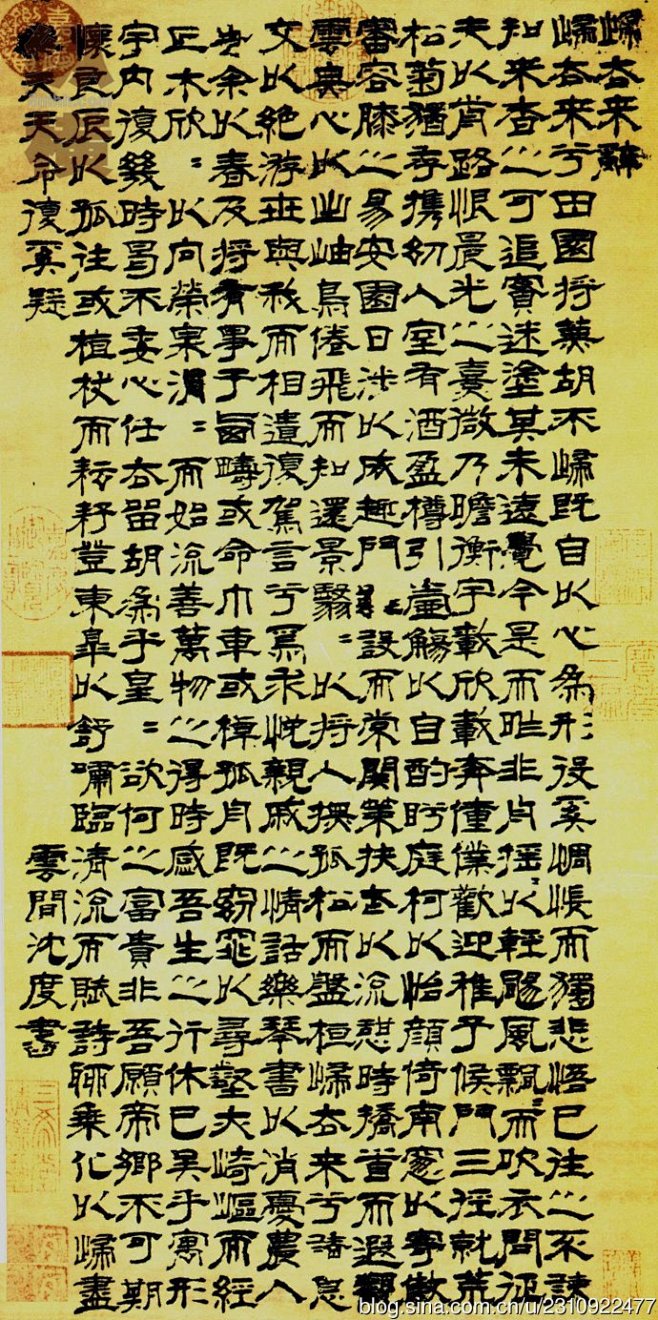 歸去来辭
歸去来兮田園将蕪胡不歸既自以心為形役奚惆悵而獨悲悟已往之不諫
知来者之可追實迷塗其未遠覺今是而昨非舟摇〻以輕颺風飄〻而吹衣問征
夫以前路恨晨光之熹微乃瞻衡宇載欣載奔僮僕歡迎稚子候門三徑就荒
松菊猶存攜幼入室有酒盈樽引壺觴以自酌眄庭柯以怡顏倚南窻以寄傲
審容膝之易安園日涉以成趣門雖設而常關策扶老以流憩時矯首而遐觀
雲無心以出岫鳥倦飛而知還景翳〻以将入撫孤松而盤桓歸去来兮請息
交以絶游世與我而相遺復駕言兮焉求悅親戚之情話樂琴書以消憂農人
告余以春及将有事于西疇或命巾車或棹孤舟既窈窕以尋壑亦崎嶇而經
丘木欣〻以向榮泉涓〻而始流善萬物之得時感吾生之行休已矣乎寓形
宇内復幾時曷不委心任去留胡為乎皇〻欲何之富貴非吾願帝鄉不可期
懷良辰以孤往或植杖而耘耔登東皋以舒嘯臨清流而賦詩聊乘化以歸盡
樂夫天命復奚疑
雲間沈度書
blog.sina.com.cn/u/2310922477